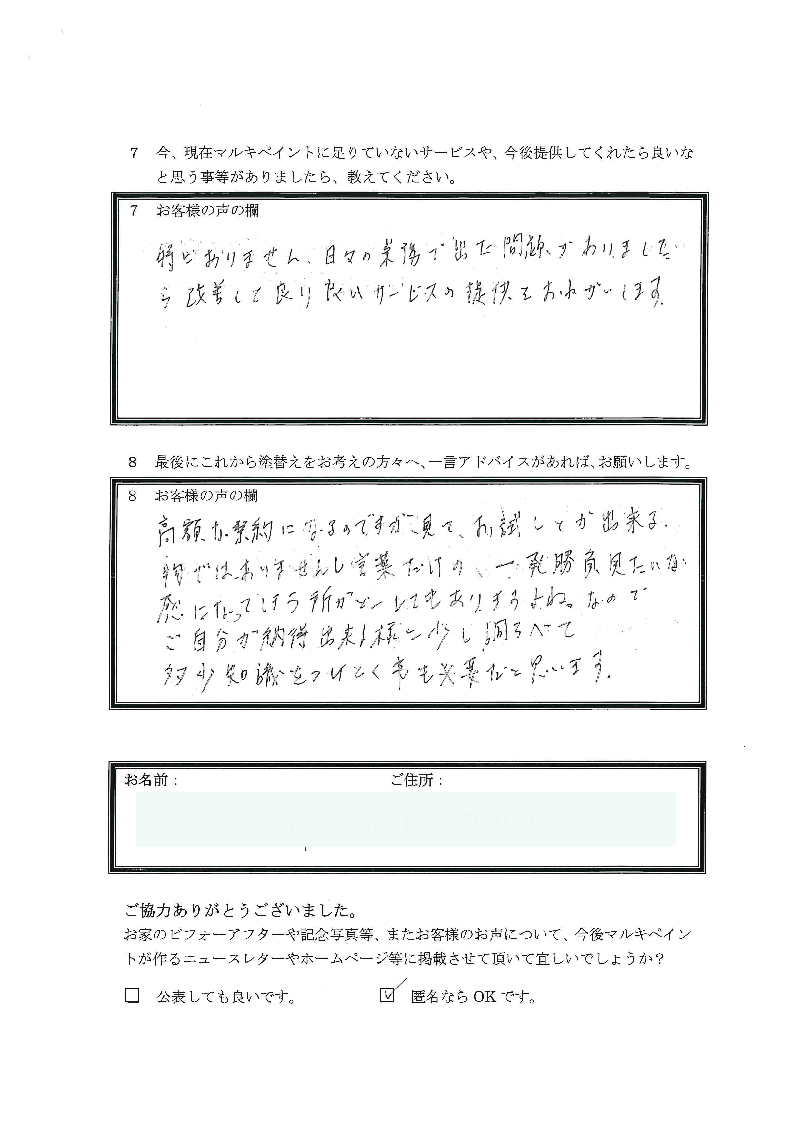 7 今、現在マルキペイントに足りていないサービスや、今後提供してくれたら良いな
と思う事等がありましたら、教えてください。
7 お客様の声の欄
特にありません、日々の業務で出た問題がありました
ら改善して良り良いサービスの提供をおねがいします。
8 最後にこれから塗替えをお考えの方々へ、一言アドバイスがあれば、お願いします。
8 お客様の声の欄
高額な契約になるのですが、見て、お試しとか出来る
物ではありませんし言葉だけの、一発勝負見たいな
感じになってしまう所がどーしてもありますよね。なので
ご自分が納得出来る様に少し調るべて
多少知識をつけとく事も必要だと思います。
お名前: ご住所:
ご協力ありがとうございました。
お家のビフォーアフターや記念写真等、またお客様のお声について、今後マルキペイン
トが作るニュースレターやホームページ等に掲載させて頂いて宜しいでしょうか?
□ 公表しても良いです。 ☑ 匿名なら OK です。